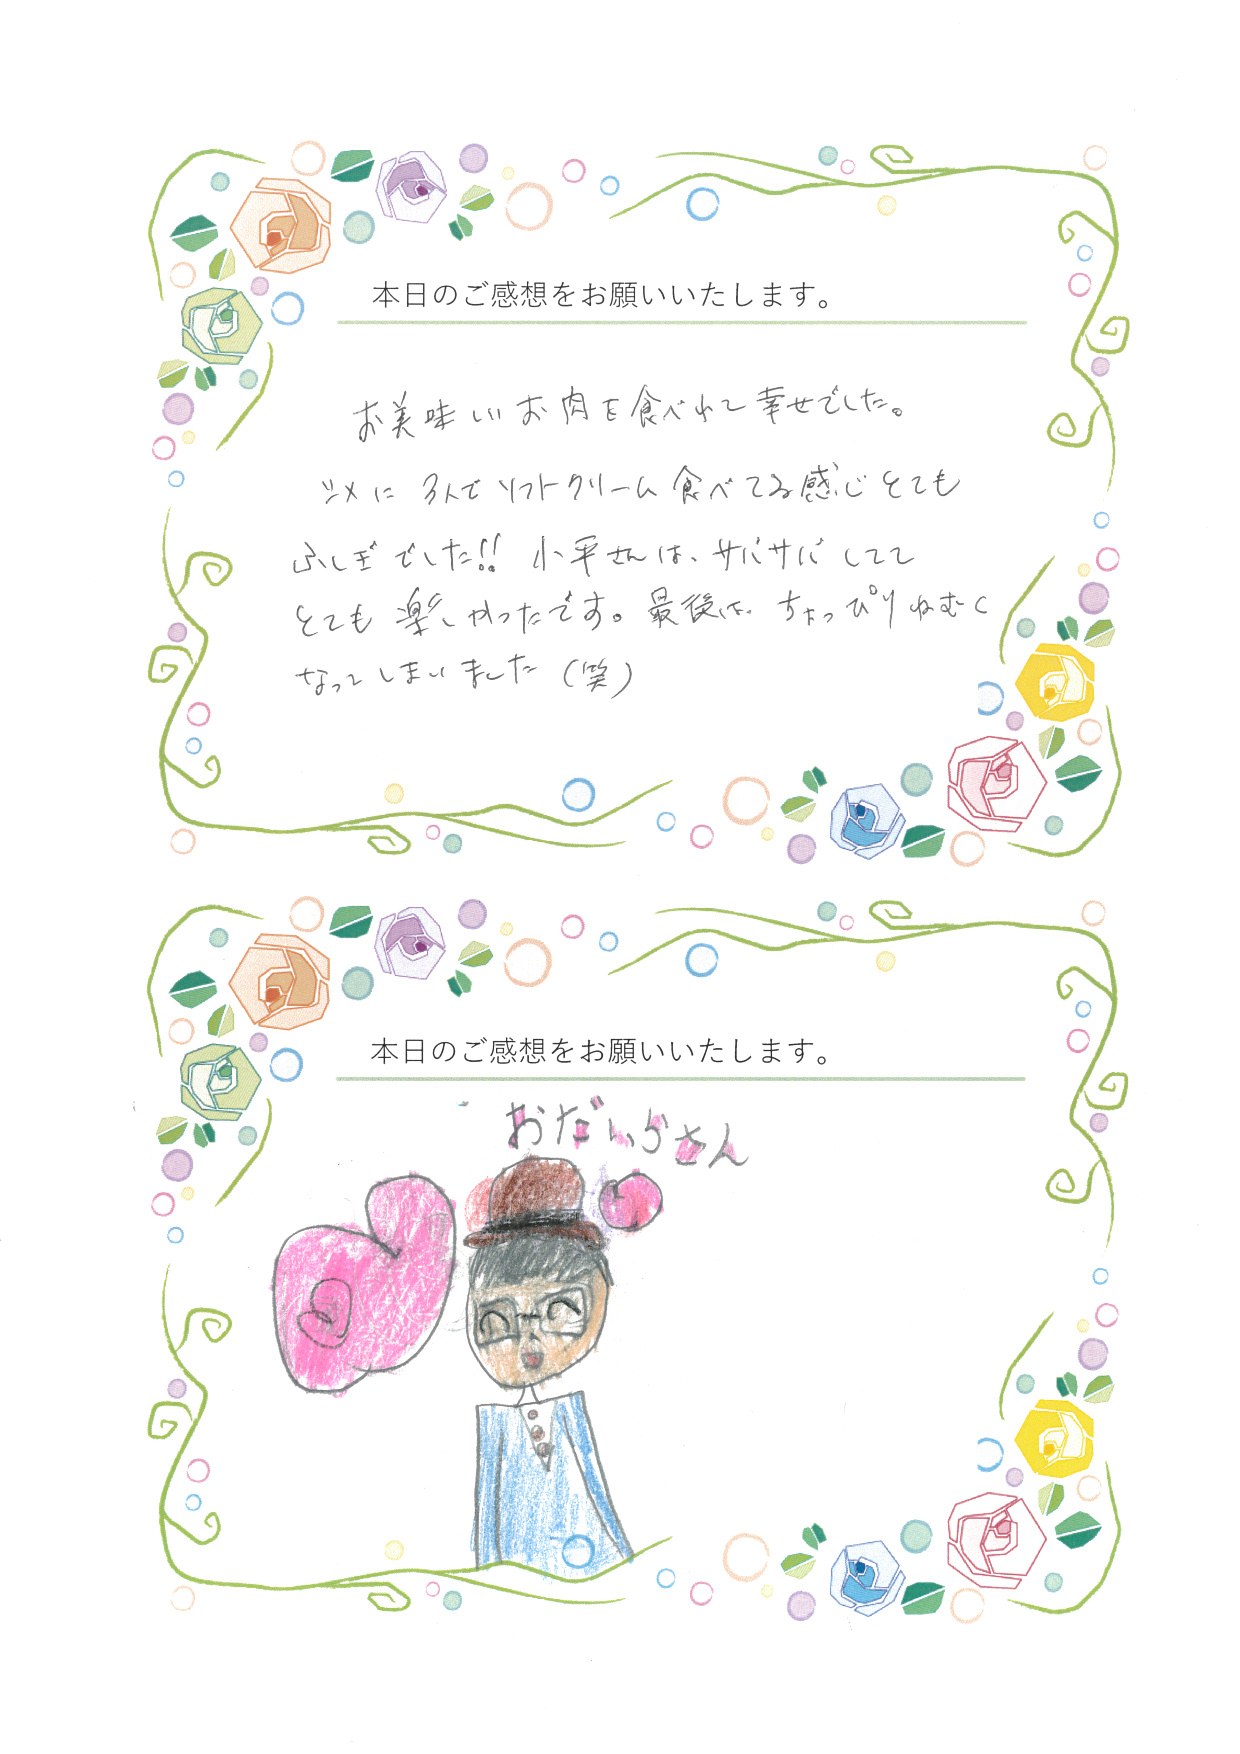 本日のご感想をお願いいたします。
お美味しいお肉を食べれて幸せでした。
シメに3人でソフトクリーム食べてる感じとても
ふしぎでした!! 小平さんは、サバサバしてて
とても楽しかったです。最後は、ちょっぴりねむく
なってしまいました(笑)
本日のご感想をお願いいたします。
おだいらさん